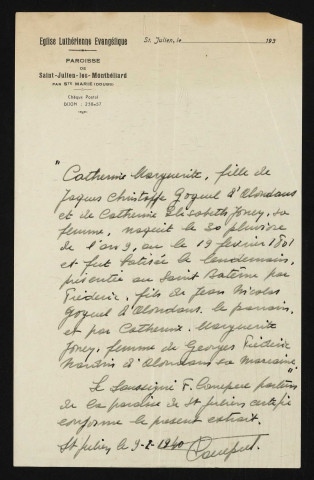 Eglise Luthérienne Evangélique
PAROISSE
DE
Saint-Julien-les-Montbéliard
PAR Ste MARIE (DOUBS)
Chèque Postal
DIJON : 238-67
St. Julien, le 193
"Catherine Marguerite, fille de
Jaques Christophe Goguel d'Allondans
et de Catherine Elisabeth Joney, sa
femme, naquit le 30 pluviose
de l'an 9, ou le 19 février 1801
et fut batisée le lendemain,
présentée au Saint Batême par
Fréderic, fils de Jean Nicolas
Goguel d'Allondans, le parrain,
et par Catherine Marguerite
Joney, femme de Georges Fréderic
Nardin d'Allondans sa marraine."
Le Soussigné F. Canepel pasteur
de la paroisse de St Julien certifie
conforme le présent extrait.
St Julien le 9-2-1940